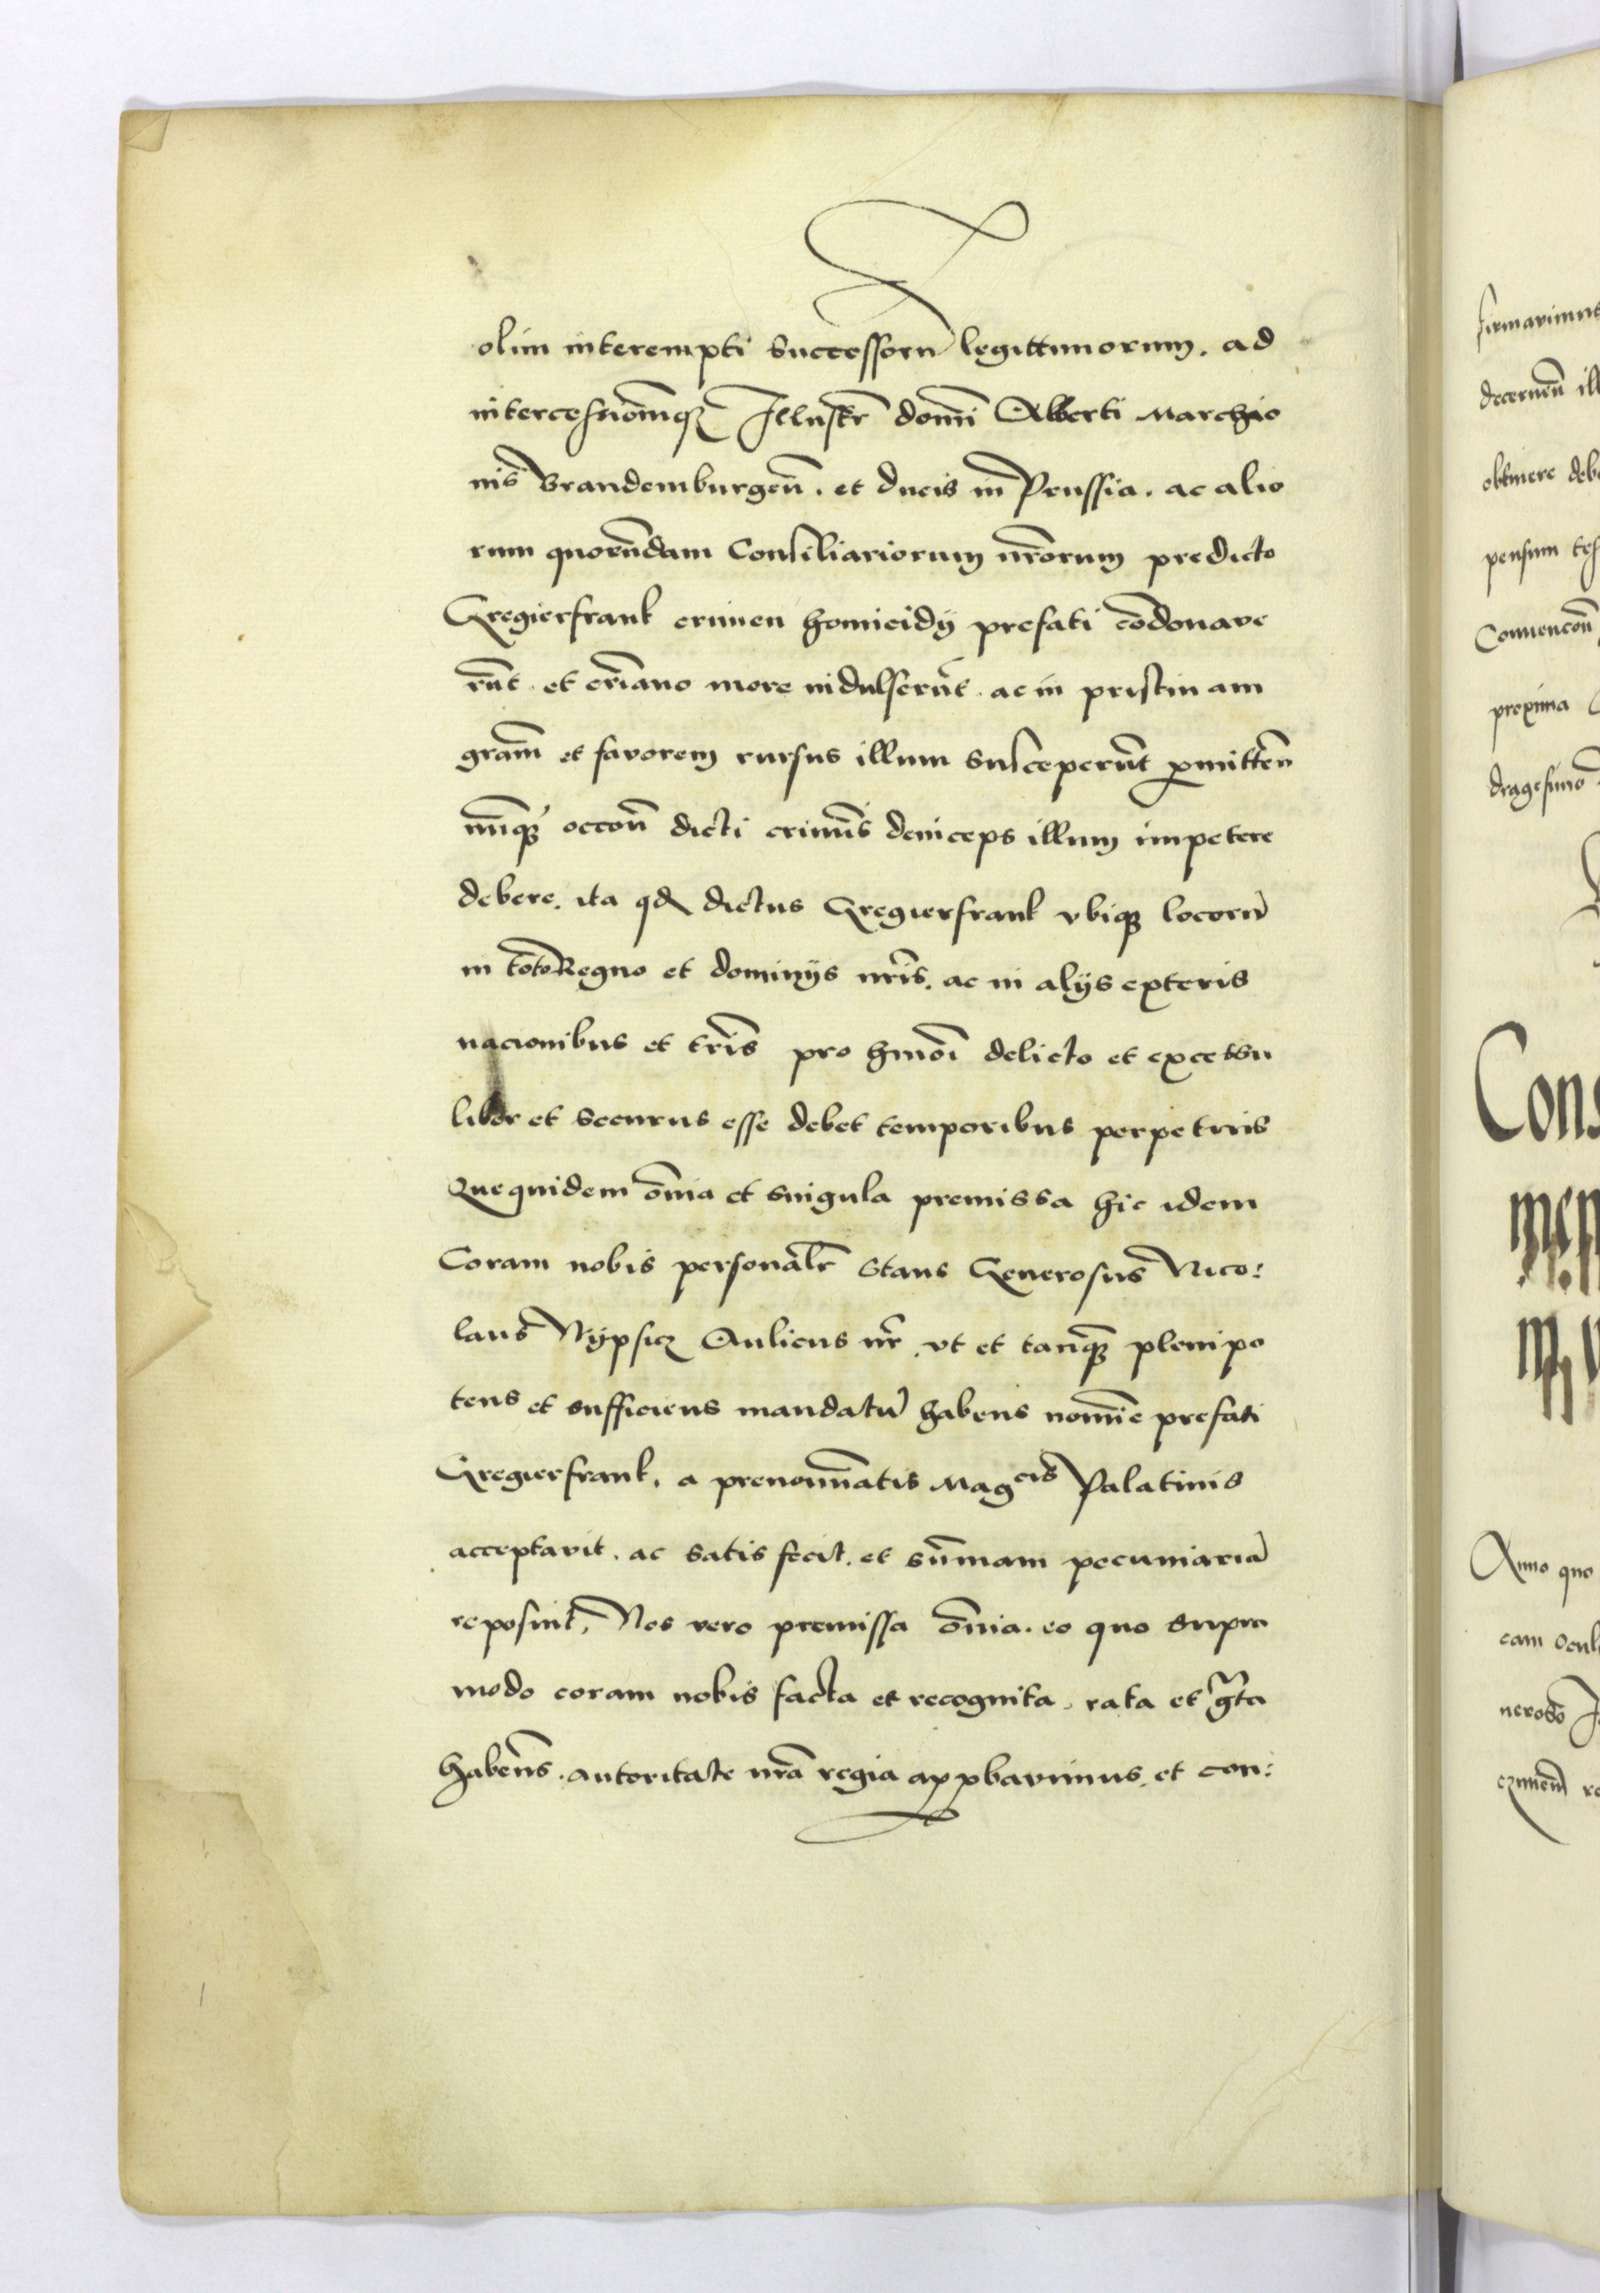 olim interempti successorũ legittimorum. ad
intercessionẽqꝫ Illustr̃ domĩ Alberti Marchio
nis Brandemburgeñ. et ducis in Prussia. ac alio
rum quorũdam Consiliariorum nr̃orum predicto
Gregierfrank crimen homicidÿ prefati cõdonave
rũt. et cr̃iano more indulserũt. ac in pristinam
gram̃ et favorem rursus illum susceperũt ꝑmitteñ
nũqꝫ occoñ dicti criminis deinceps illum impetere
debere. ita qd dictus Gregierfrank vbiqꝫ locorũ
in toto Regno et dominÿs nr̃is. ac in alÿs exteris
nacionibus et tr̃is pro hmõi delicto et excessu
liber et securus esse debet temporibus perpetuis
Quequidem õnia et singula premissa hic idem
Coram nobis personalr̃ stans Generosus Nico:
laus Nÿpsicz Aulicus nr̃. vt et tanqꝫ plenipo
tens et sufficiens mandatũ habens nomĩe prefati
Gregierfrank, a prenomĩatis Mag^cis Palatinis
acceptavit. ac satis fecit. et sũmam pecuniariã
reposuit, Nos vero premissa õnia. eo quo supra
modo coram nobis facta et recognita. rata et grata
habeñs. autoritate nr̃a regia apꝓbavimus. et con:
firmavimus
decerneñ ill
obtinere deb
pensum tes
Convencoñ
proxima
dragesimo
Cons
Anno quo
cam
neroso